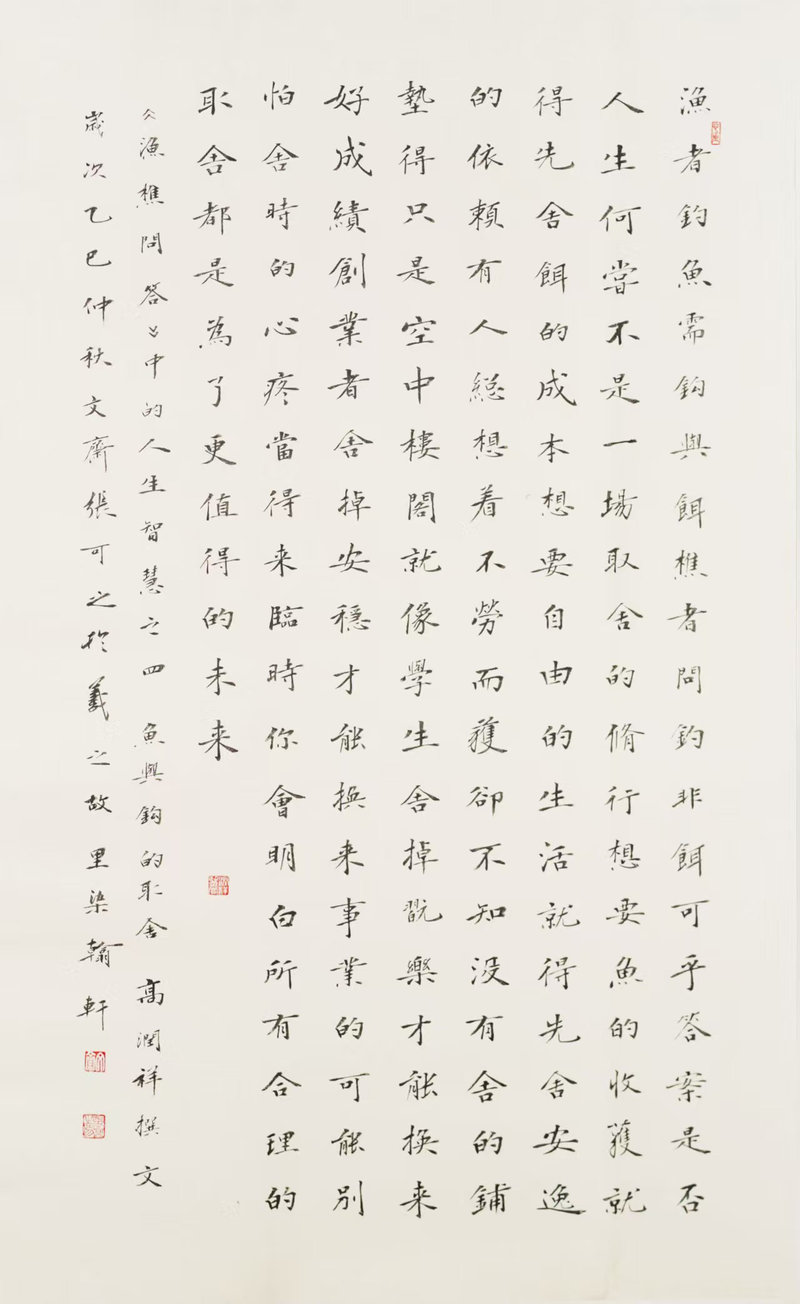 漁者釣魚需鈎與餌樵者問釣非餌可乎答案是否
人生何嘗不是一場取舍的脩行想要魚的收獲就
得先舍餌的成本想要自由的生活就得先舍安逸
的依賴有人總想着不勞而獲卻不知没有舍的鋪
墊得只是空中樓閣就像學生舍掉翫樂才能换来
好成績創業者舍掉安穩才能换来事業的可能别
怕舍時的心疼當得来臨時你會明白所有合理的
取舍都是為了更值得的未来
《漁樵問答》中的人生智慧之四 魚與鈎的取舍 高潤祥撰文
歲次乙巳仲秋文齋張可之於羲之故里染翰軒